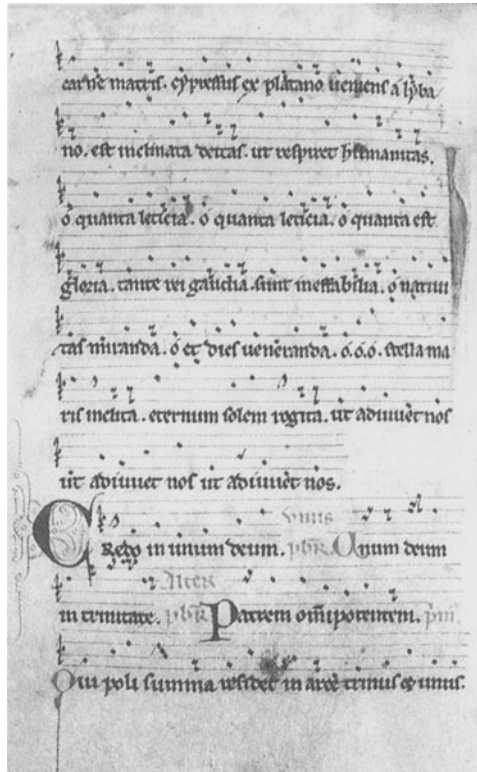 carne matris. cypressus ex platano veniens a lyba
no. est inclinata deitas. ut respiret humanitas.
o quanta leticia. o quanta leticia. o quanta est
gloria. tante rei gaudia. sunt ineffabilia. o nativi
tas miranda. o et dies veneranda. o. o. o. stella ma
ris inclita. eternum solem rogita. ut adiuvet nos
ut adiuvet nos ut adiuvet nos.
Unus
Credo in unum deum. pbr. Unum deum
Alter
in trinitate. pbr. Patrem omipotentem. pm.
Qui poli summa residet in arce trinus et unus.